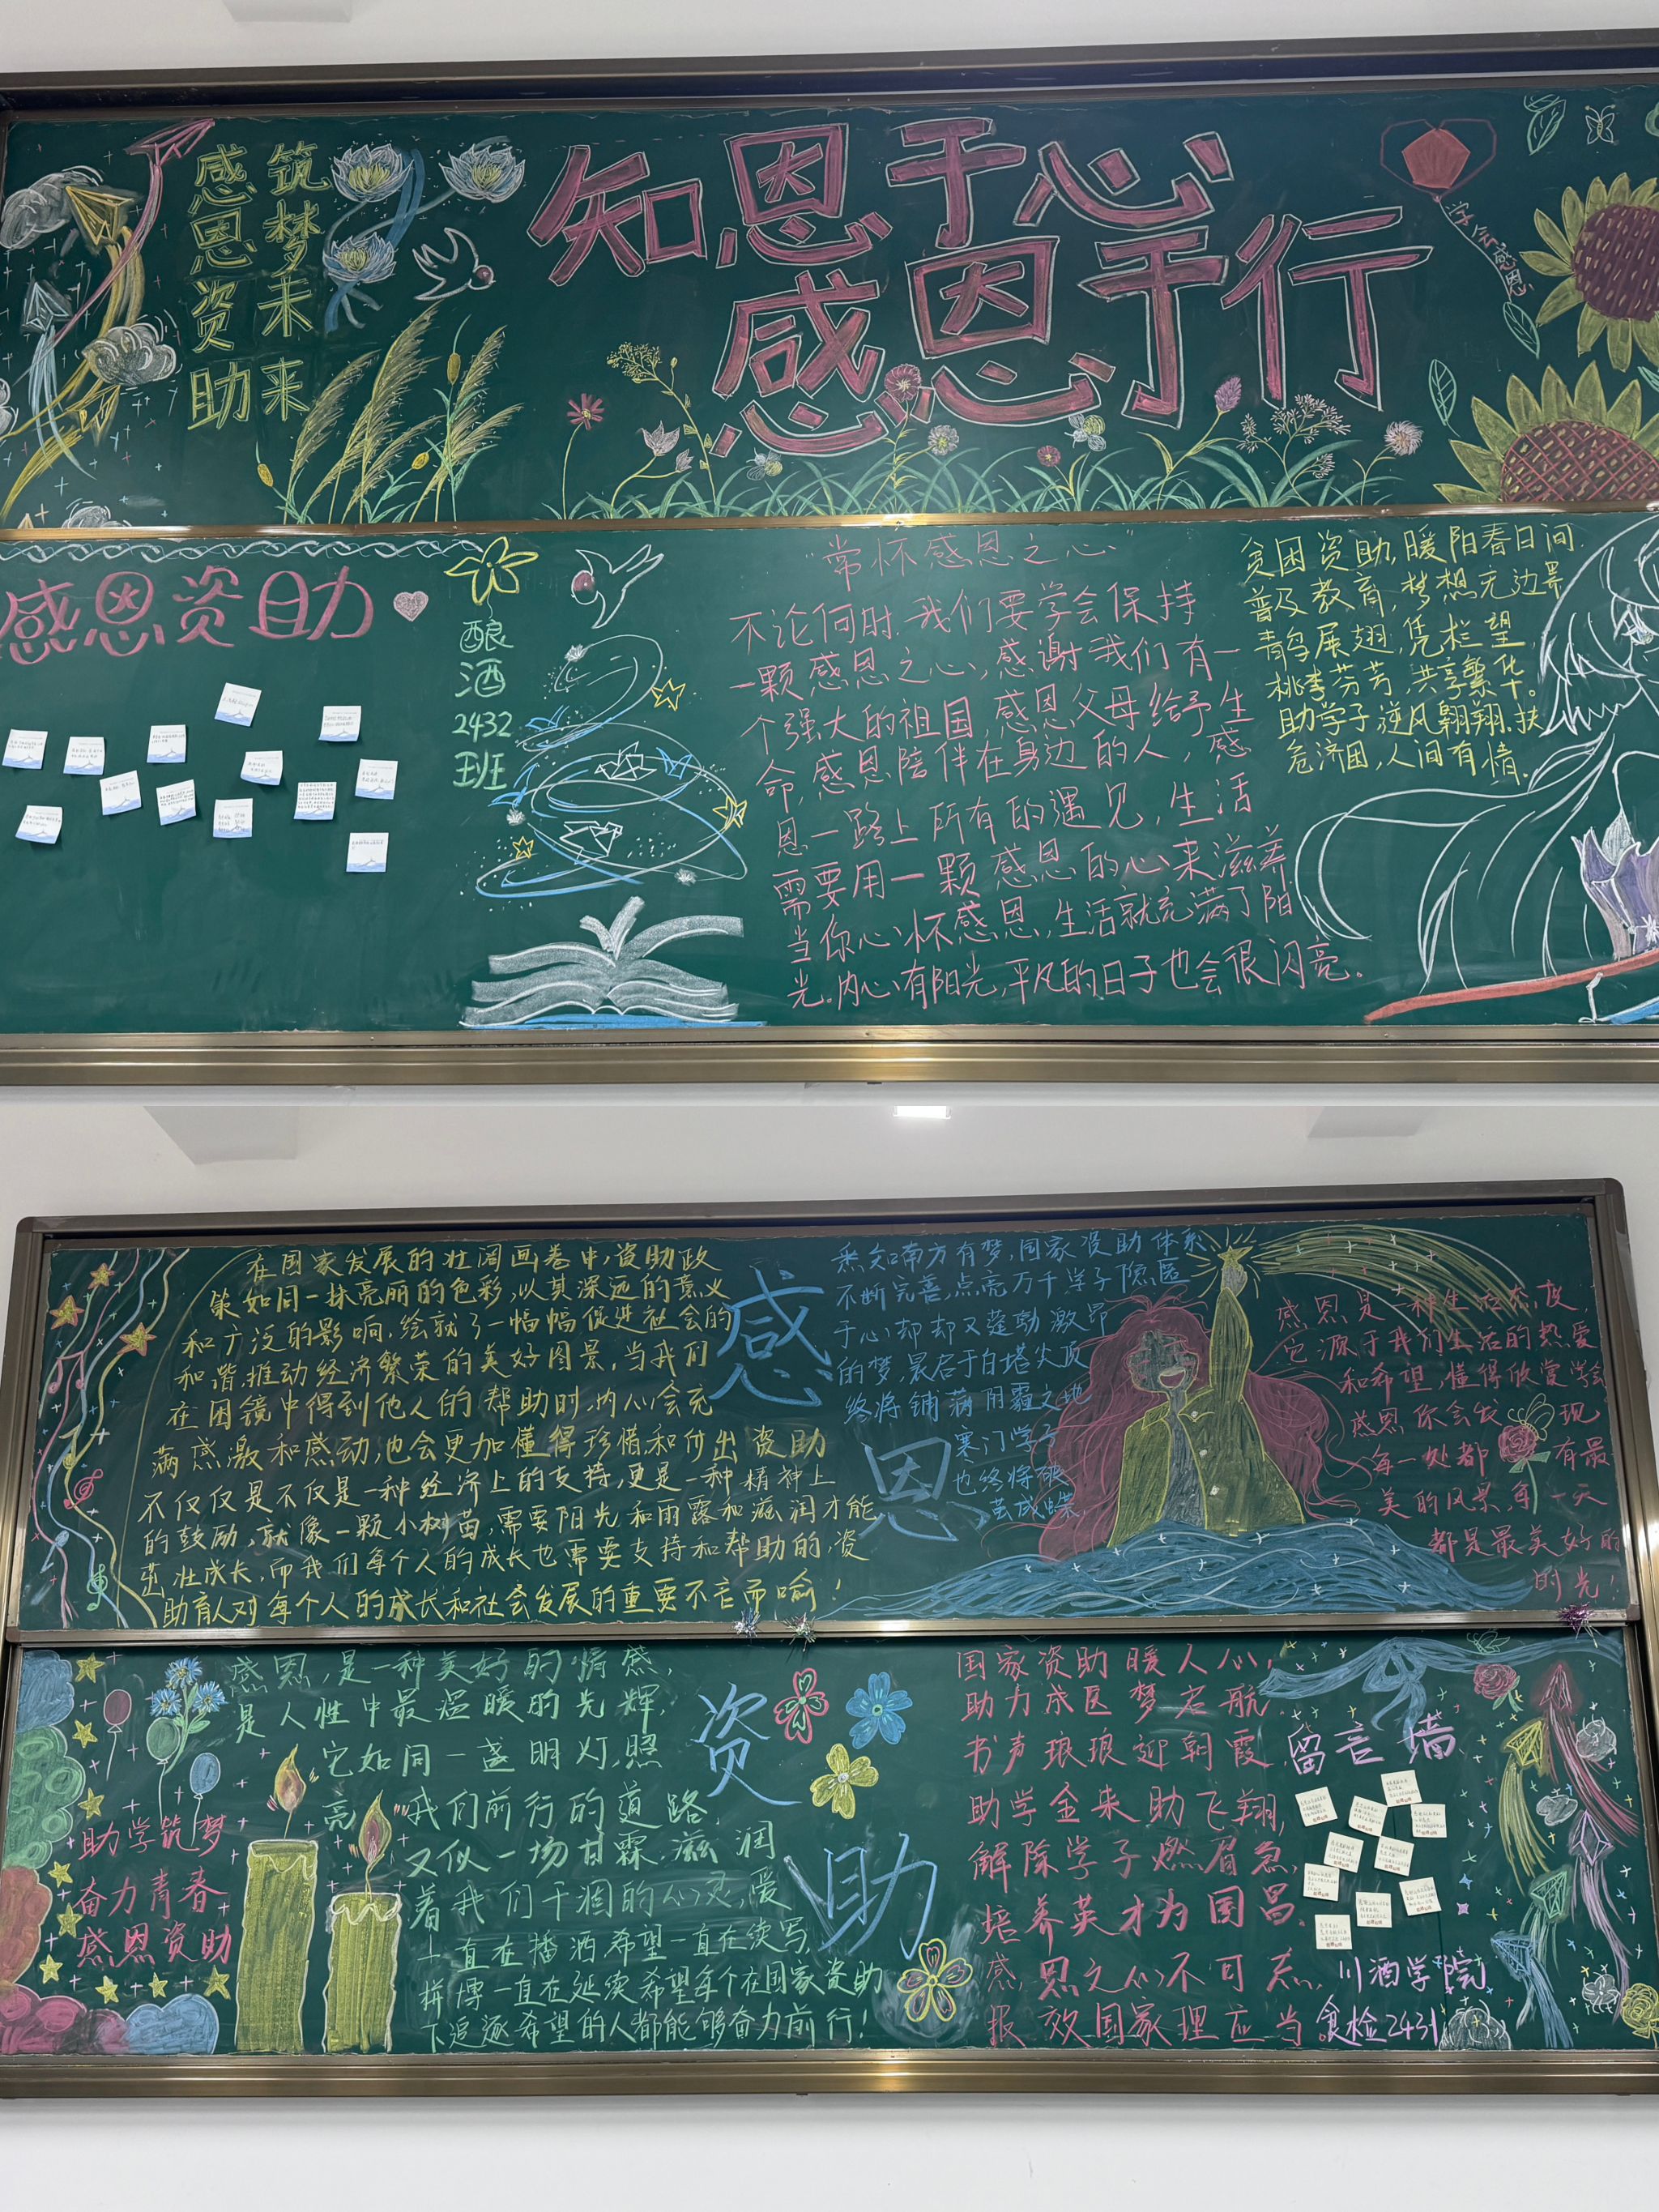 感恩资助
筑梦未来
知恩于心
感恩于行
学会感恩
感恩资助
酿酒
2432
班
"常怀感恩之心"
不论何时,我们要学会保持
一颗感恩之心,感谢我们有一
个强大的祖国,感恩父母给予生
命,感恩陪伴在身边的人,感
恩一路上所有的遇见,生活
需要用一颗感恩的心来滋养
当你心怀感恩,生活就充满了阳
光。内心有阳光,平凡的日子也会很闪亮。
贫困资助,暖阳春日间
普及教育,梦想无边界
青鸟展翅,凭栏望
桃李芬芳,共享繁华。
助学子逆风翱翔.扶
危济困,人间有情.
在国家发展的壮阔画卷中,资助政
策如同一抹亮丽的色彩,以其深远的意义
和广泛的影响,绘就了一幅幅促进社会的
和谐,推动经济繁荣的美好图景,当我们
在困镜中得到他人的帮助时,内心会充
满感激和感动,也会更加懂得珍惜和付出资助
不仅仅是不仅是一种经济上的支持,更是一种精神上
的鼓励,就像一颗小树苗,需要阳光和雨露和滋润才能
茁壮成长,而我们每个人的成长也需要支持和帮助的,资
助育人对每个人的成长和社会发展的重要不言而喻!
感
恩
悉知南方有梦,国家资助体系
不断完善,点亮万千学子隐匿
于心却却又蓬勃激昂
的梦,晨启于白塔尖顶
终将铺满阴霾之地
寒门学子
也终将破
茧成蝶
感恩是一种生活态度,
它源于我们生活的热爱
和希望,懂得欣赏学会
感恩你会发现
每一处都有最
美的风景,每一天
都是最美好的
时光!
助学筑梦
奋力青春
感恩资助
感恩,是一种美好的情感,
是人性中最温暖的光辉,
它如同一盏明灯,照
亮我们前行的道路
又似一场甘霖,滋润
着我们干涸的心灵,爱
一直在播洒希望一直在续写
拼博一直在延续希望每个在国家资助
下追逐希望的人都能够奋力前行!
资
助
国家资助暖人心,
助力成医梦启航.
书声琅琅迎朝霞,
助学金来助飞翔,
解除学子燃眉急,
培养英才为国昌.
感恩之心不可忘,
报效国家理应当.
留言墙
川酒学院
食检2431